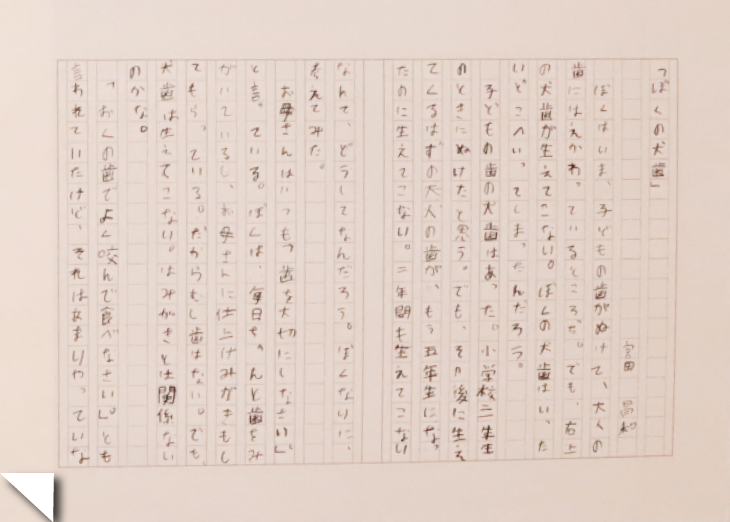 「ぼくの犬歯」
宮田 昌和
ぼくはいま、子どもの歯がぬけて、大人の
歯にはえかわっているところだ。でも、右上
の犬歯が生えてこない。ぼくの犬歯はいった
いどこへいってしまったんだろう。
子どもの歯の犬歯はあった。小学校二年生
のときにぬけたと思う。でも、その後に生え
てくるはずの大人の歯が、もう五年生になっ
たのに生えてこない。二年間も生えてこない
なんて、どうしてなんだろう。ぼくなりに、
考えてみた。
お母さんはいつも「歯を大切にしなさい」
と言っている。ぼくは、毎日ちゃんと歯をみ
がいているし、お母さんに仕上げみがきもし
てもらっている。だからむし歯はない。でも、
犬歯は生えてこない。はみがきとは関係ない
のかな。
「おくの歯でよく咬んで食べなさい」とも
言われていたけど、それはあまりやっていな